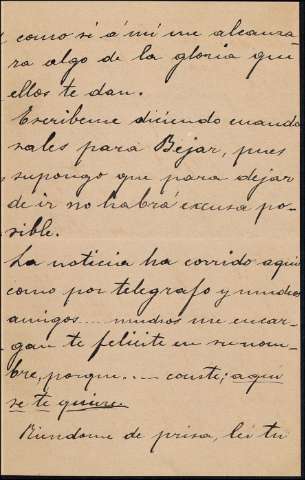 como si á mi me alcanza
ra algo de la gloria que
ellos te dan.
Escribeme diciendo cuando
sales para Bejar, pues
supongo que para dejar
de ir no habrá excusa po-
sible.
La noticia ha corrido aqui
como por telegrafo y muchos
amigos.... muchos me encar-
gan te felicite en su nom-
bre, porque.... conste; aqui
se te quiere
Riendome de prisa, lei tu